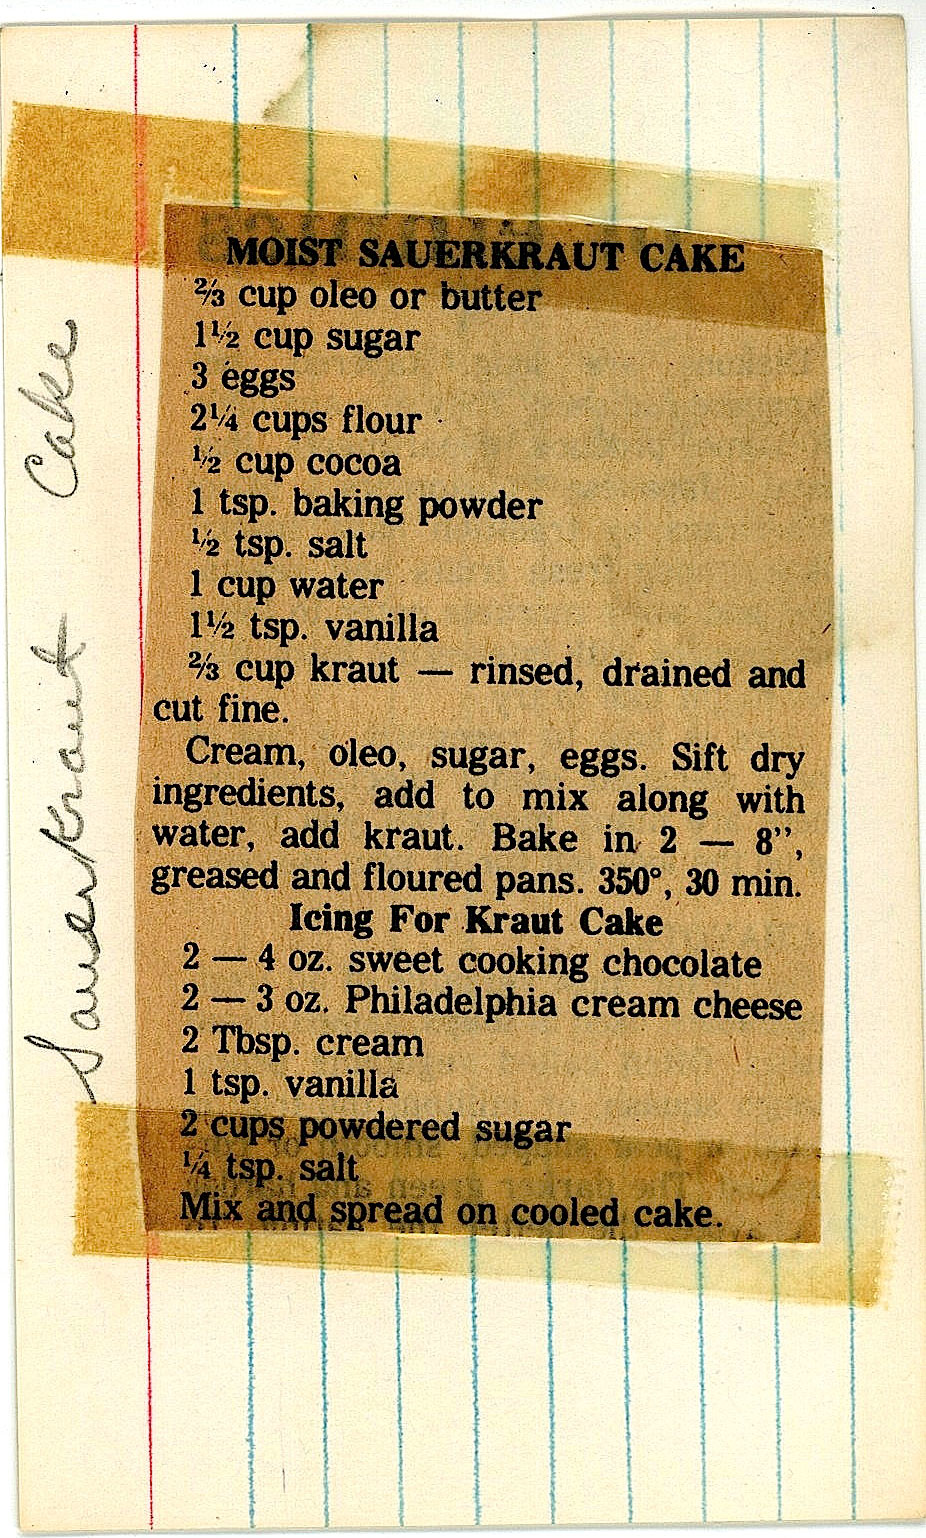 Sauerkraut Cake
MOIST SAUERKRAUT CAKE
⅔ cup oleo or butter
1½ cup sugar
3 eggs
2¼ cups flour
½ cup cocoa
1 tsp. baking powder
½ tsp. salt
1 cup water
1½ tsp. vanilla
⅔ cup kraut — rinsed, drained and
cut fine.
Cream, oleo, sugar, eggs. Sift dry
ingredients, add to mix along with
water, add kraut. Bake in 2 — 8”,
greased and floured pans. 350°, 30 min.
Icing For Kraut Cake
2 — 4 oz. sweet cooking chocolate
2 — 3 oz. Philadelphia cream cheese
2 Tbsp. cream
1 tsp. vanilla
2 cups powdered sugar
¼ tsp. salt
Mix and spread on cooled cake.